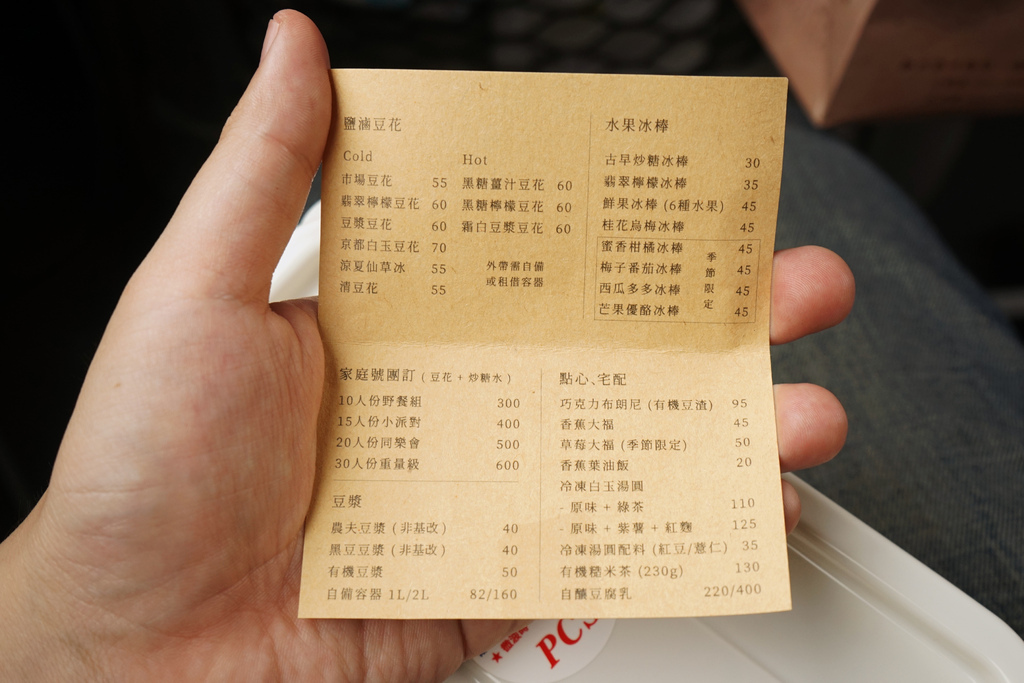 鹽滷豆花
Cold
市場豆花 55
翡翠檸檬豆花 60
豆漿豆花 60
京都白玉豆花 70
涼夏仙草冰 55
清豆花 55
Hot
黑糖薑汁豆花 60
黑糖檸檬豆花 60
霜白豆漿豆花 60
外帶需自備
或租借容器
水果冰棒
古早炒糖冰棒 30
翡翠檸檬冰棒 35
鮮果冰棒 (6種水果) 45
桂花烏梅冰棒 45
蜜香柑橘冰棒 45
梅子番茄冰棒 45
西瓜多多冰棒 45
芒果優酪冰棒 45
季節限定
家庭號團訂 ( 豆花 + 炒糖水 )
10人份野餐組 300
15人份小派對 400
20人份同樂會 500
30人份重量級 600
豆漿
農夫豆漿 ( 非基改 ) 40
黑豆豆漿 ( 非基改 ) 40
有機豆漿 50
自備容器 1L/2L 82/160
點心、宅配
巧克力布朗尼 (有機豆渣) 95
香蕉大福 45
草莓大福 (季節限定) 50
香蕉葉油飯 20
冷凍白玉湯圓
- 原味 + 綠茶 110
- 原味 + 紫薯 + 紅麴 125
冷凍湯圓配料 (紅豆/薏仁) 35
有機糙米茶 (230g) 130
自釀豆腐乳 220/400
PCS